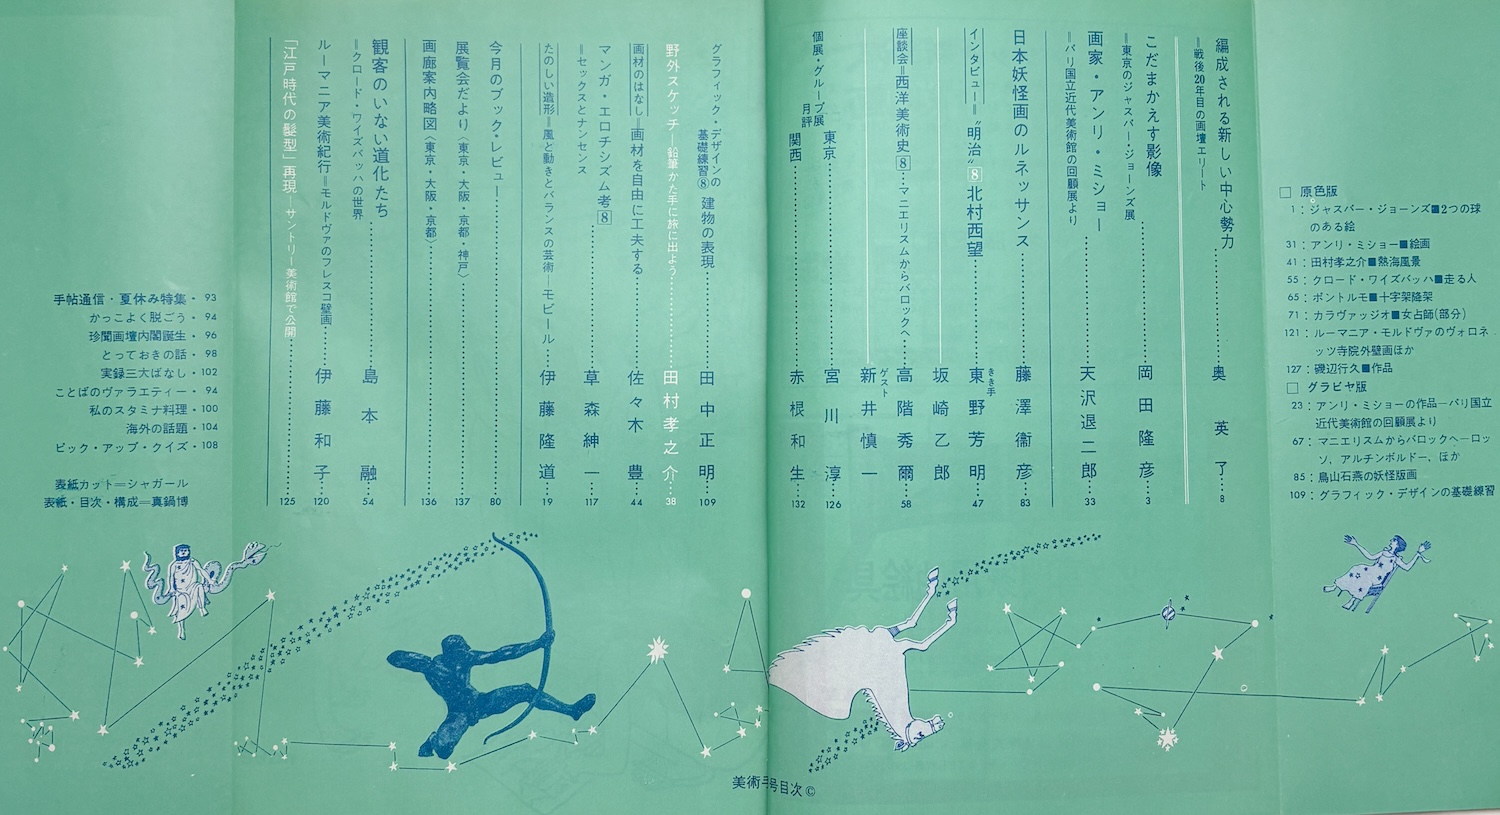 □ 原色版
1：ジャスパー・ジョーンズ■2つの球
のある絵
31：アンリ・ミショー■絵画
41：田村孝之介■熱海風景
55：クロード・ワイズバッハ■走る人
65：ポントルモ■十字架降架
71：カラヴァッジオ■女占師(部分)
121：ルーマニア・モルドヴァのヴォロネ
ッツ寺院外壁画ほか
127：磯辺行久■作品
□ グラビヤ版
23：アンリ・ミショーの作品—パリ国立
近代美術館の回顧展より
67：マニエリスムからバロックへ—ロッ
ソ、アルチンボルドー、ほか
85：鳥山石燕の妖怪版画
109：グラフィック・デザインの基礎練習
編成される新しい中心勢力……奥英了……8
＝戦後20年目の画壇エリート
こだまかえす影像……岡田隆彦……3
＝東京のジャスパー・ジョーンズ展
画家・アンリ・ミショー……天沢退二郎……33
＝パリ国立近代美術館の回顧展より
日本妖怪画のルネッサンス……藤澤衞彦……83
インタビュー＝“明治”8 北村西望……きき手 東野芳明……47
坂崎乙郎
座談会＝西洋美術史8…マニエリスムからバロックへ……高階秀爾……58
ゲスト 新井慎一
個展・グループ展月評
東京……宮川淳……126
関西……赤根和生……132
グラフィック・デザインの基礎練習⑧ 建物の表現……田中正明……109
野外スケッチ—鉛筆かた手に旅に出よう？……田村孝之介……38
画材のはなし＝画材を自由に工夫する……佐々木豊……44
マンガ・エロチシズム考8……草森紳一……117
＝セックスとナンセンス
たのしい造形＝風と動きとバランスの芸術—モビール……伊藤隆道……19
今月のブック・レビュー……80
展覧会だより〈東京・大阪・京都・神戸〉……137
画廊案内略図〈東京・大阪・京都〉……136
観客のいない道化たち……島本融……54
＝クロード・ワイズバッハの世界
ルーマニア美術紀行＝モルドヴァのフレスコ壁画……伊藤和子……120
「江戸時代の髪型」再現—サントリー美術館で公開……125
手帖通信・夏休み特集・93
かっこよく脱ごう・94
珍聞画壇内閣誕生・96
とっておきの話・98
実録三大ばなし・102
ことばのヴァラエティー・94
私のスタミナ料理・100
海外の話題・104
ピック・アップ・クイズ・108
表紙カット＝シャガール
表紙・目次・構成＝真鍋博
美術手
号目次©